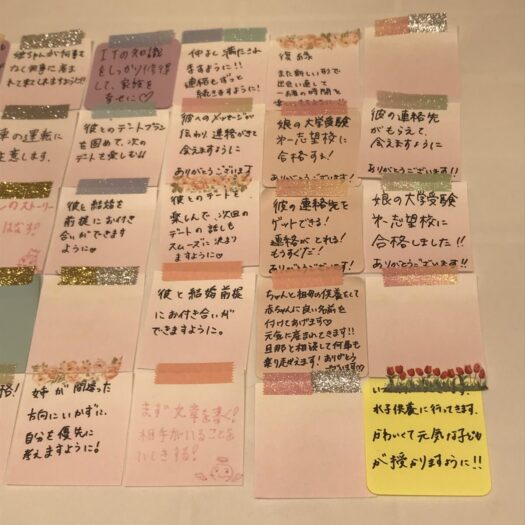 赤ちゃんが何事も
なく無事に産ま
れて来てくれますように
ITの知識
をしっかり修得
して、家族を
幸せに♡
仲良し満たされ
ますように!!
連絡もずっと
続きますように!
復縁
また新しい形で
出会い直して
一緒の時間を
彼の連絡先
がもらえて、
会えますように
ありがとうございます!!
車の運転に
注意します。
彼とのデートプラン
を固めて、次の
デートを楽しむ!!
彼へのメッセージが
伝わり、連絡がきて
会えますように
ありがとうございます
娘の大学受験
第一志望校に
合格する!
ありがとうございます
のストーリー
はなす!
彼と結婚を
前提にお付き
合いができます
ように♡
彼とのデートを
楽しんで、次回の
デートの話しも
スムーズに決まり
ますように♡
彼の連絡先を
ゲットできる!
連絡がとれる!
もうすぐだ!
ありがとうございます!
娘の大学受験
第一志望校に
合格しました!!
ありがとうございます!!
彼と結婚前提
にお付き合いが
できますように。
ちゃんと祖母の供養をして
赤ちゃんに良い名前を
付けてあげます♡
元気に産まれてきます!!
旦那と相談して何事も
乗り越えます!ありがとう
ございます♡
合格!
姉が間違った
方向にいかずに、
自分を優先に
考えますように!
まず文章を書く!
相手がいることを
水子供養に行ってきます。
かわいくて元気な子ども
が授かりますように!!